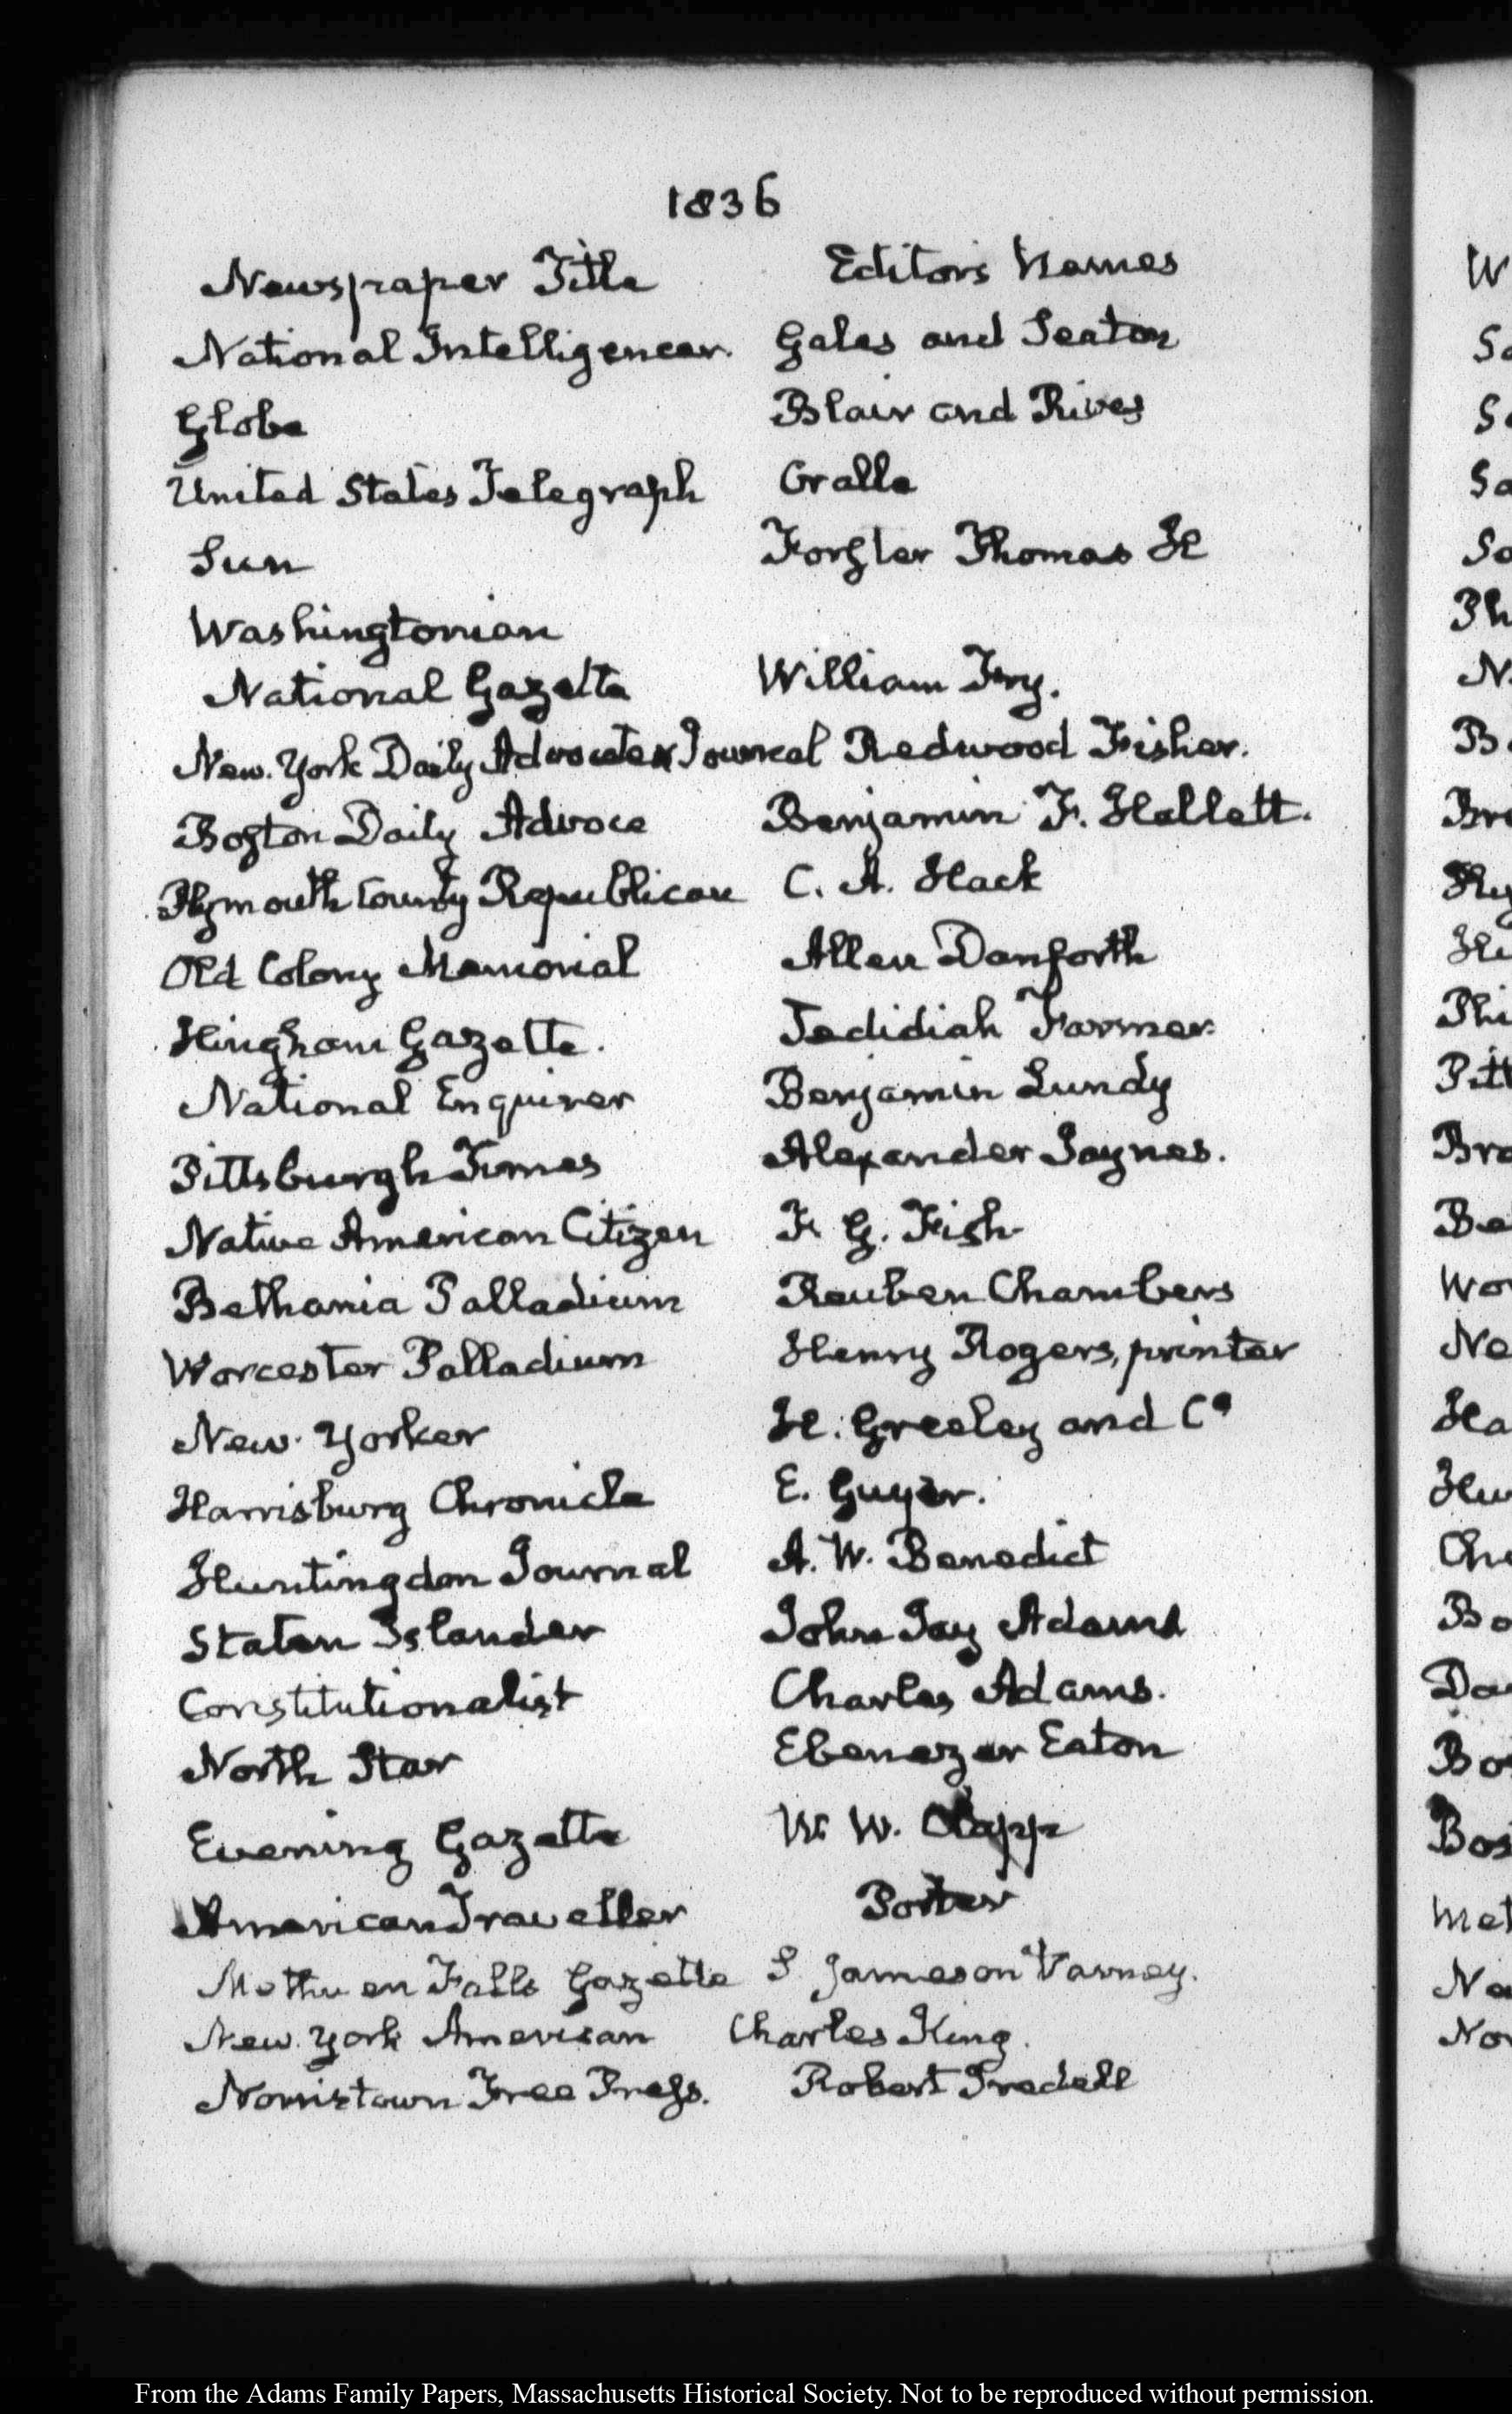 1836
Newspaper Title Editors Names
National Intelligencer. Gales and Seaton
Globe Blair and Rives
United States Telegraph Cralle
Sun Thomas H
Washingtonian
National Gazette William Fry.
New-York Daily Advocate & Journal Redwood Fisher.
Boston Daily Advoce Benjamin F. Hallett.
Plymouth County Republican C. A. Hack
Old Colony Memorial Allen Danforth
Hingham Gazette. Jedidiah Farmer
National Enquirer Benjamin Lundy
Pittsburgh Times Alexander Jaynes.
Native American Citizen F. G. Fish
Bethania Palladium Reuben Chambers
Worcester Palladium Henry Rogers, printer
New-Yorker H. Greeley and Co
Harrisburg Chronicle E. Guyer.
Huntingdon Journal A. W. Benedict
Staten Islander John Jay Adams
Constitutionalist Charles Adams.
North Star Ebenezer Eaton
Evening Gazette W. W. Clapp
American Traveller Porter
Methuen Falls Gazette S. Jameson Varney.
New-York American Charles King.
Norristown Free Press. Robert Iredell
W
So
So
So
So
Ph
N
B
Bro
Hi
Phi
Pitt
Bra
Be
Wor
Ne
Ha
Hu
Che
Bo
Da
Bo
Bos
Met
Ne
Nor
From the Adams Family Papers, Massachusetts Historical Society. Not to be reproduced without permission.